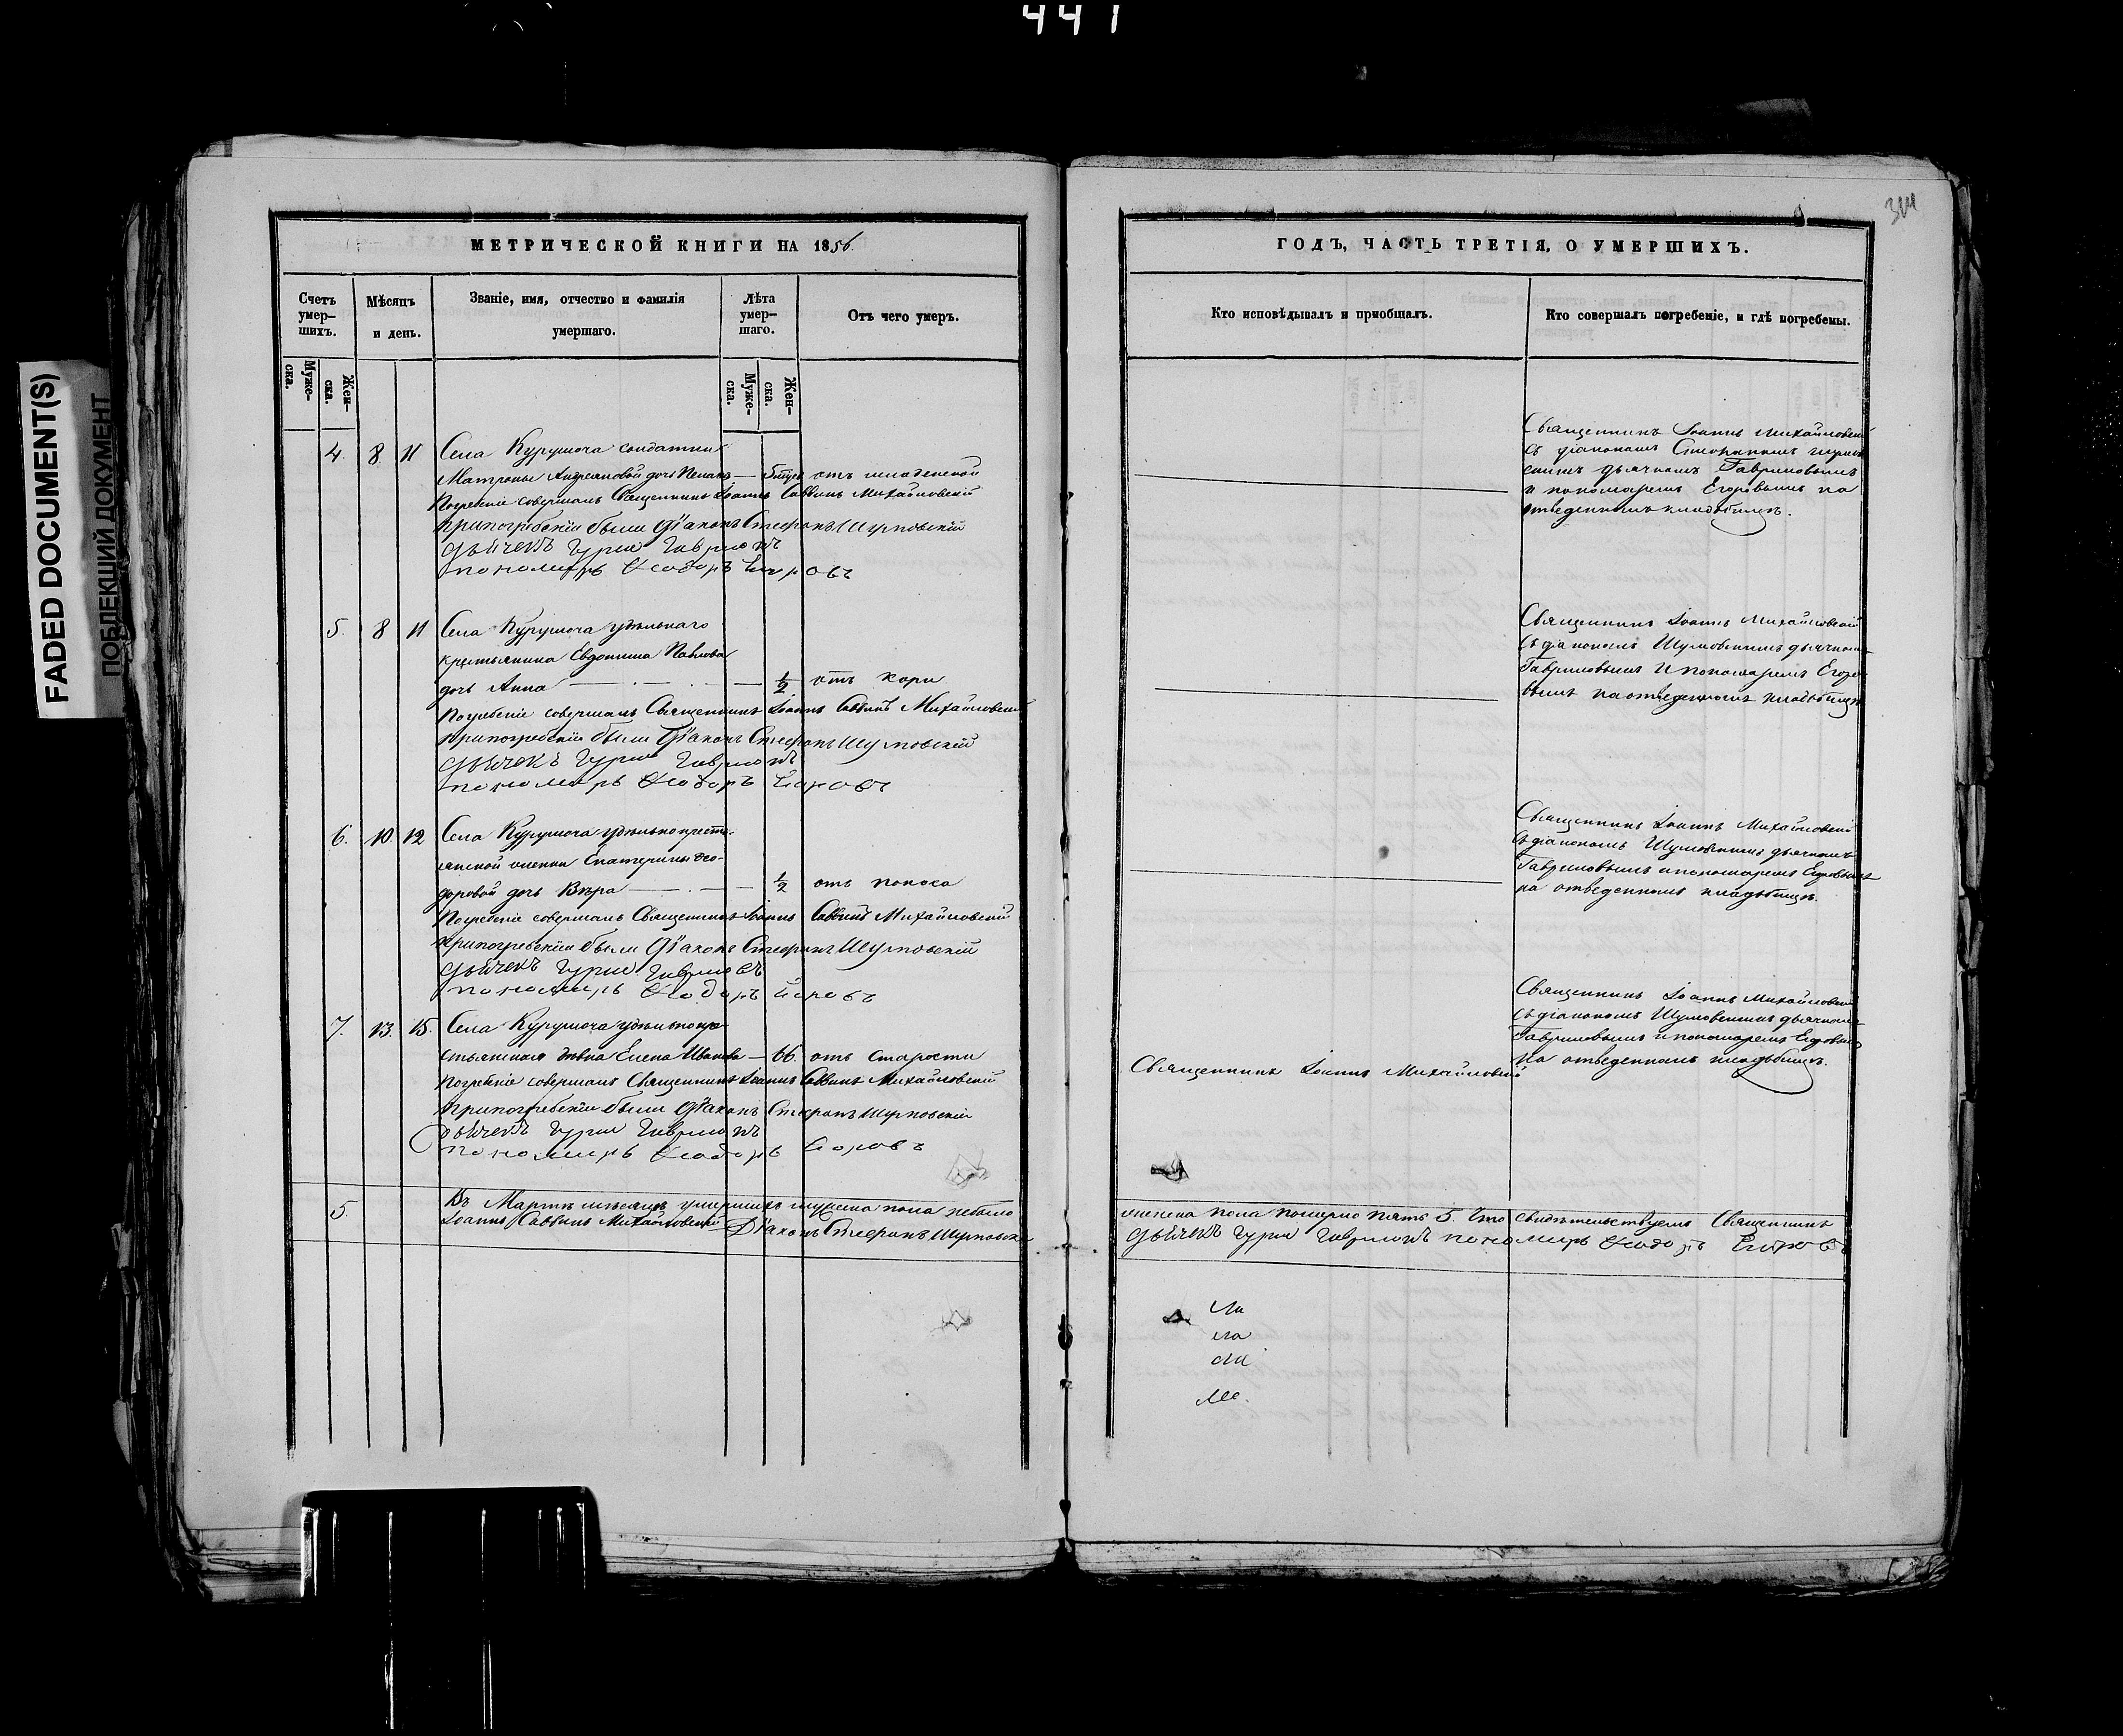 441
314
FADED DOCUMENT(S)
ПОБЛЕКШИЙ ДОКУМЕНТ
МЕТРИЧЕСКОЙ КНИГИ НА 1856.
Счетъ умер-
шихъ.
Мѣсяцъ
и день.
Званіе, имя, отчество и фамилія
умершаго.
Лѣта
умер-
шаго.
Отъ чего умеръ.
Муже-
ска.
Жен-
ска.
Муже-
ска.
Жен-
ска.
4. 8 11 Села Курумоча солдатки
Матроны Андреяновой дочь — отъ младенской
Погребеніе совершалъ Священникъ Іоаннъ Саввинъ Михайловскій
при погребеніи были Діаконъ Стефанъ Шумовскій
дьячекъ Гурій Гавриловъ
пономарь Ѳеодоръ Егоровъ
5. 8 11 Села Курумоча удѣльнаго
крестьянина Евдокима Павлова
дочь Анна — 1/2 отъ кори
Погребеніе совершалъ Священникъ Іоаннъ Саввинъ Михайловскій
при погребеніи были Діаконъ Стефанъ Шумовскій
дьячекъ Гурій Гавриловъ
пономарь Ѳеодоръ Егоровъ
6. 10. 12 Села Курумоча удѣльно крестъ-
янской женки Екатерины Ѳео-
доровой дочь Вѣра — 1/2 отъ поноса
Погребеніе совершалъ Священникъ Іоаннъ Саввинъ Михайловскій
при погребеніи были Діаконъ Стефанъ Шумовскій
дьячекъ Гурій Гавриловъ
пономарь Ѳеодоръ Егоровъ
7. 13. 15. Села Курумоча удѣльно кре-
стьянская дѣвка Елена Иванова — 66. отъ старости
Погребеніе совершалъ Священникъ Іоаннъ Саввинъ Михайловскій
при погребеніи были Діаконъ Стефанъ Шумовскій
дьячекъ Гурій Гавриловъ
пономарь Ѳеодоръ Егоровъ
5. Въ Мартѣ мѣсяцѣ умершихъ мужеска пола небыло
Іоаннъ Саввинъ Михайловскій Діаконъ Стефанъ Шумовскій
ГОДЪ, ЧАСТЬ ТРЕТІЯ, О УМЕРШИХЪ.
Кто исповѣдывалъ и приобщалъ.
Кто совершалъ погребеніе, и гдѣ погребены.
Священникъ Іоаннъ Михайловскій
съ діакономъ Стефаномъ Шумов-
скимъ дьячкомъ Гавриловымъ
и пономаремъ Егоровымъ на
отведенномъ кладбищѣ.
Священникъ Іоаннъ Михайловскій
съ діакономъ Шумовскимъ дьячкомъ
Гавриловымъ и пономаремъ Егоро-
вымъ на отведенномъ кладбищѣ
Священникъ Іоаннъ Михайловскій
съ діакономъ Шумовскимъ дьячкомъ
Гавриловымъ и пономаремъ Егоровымъ
на отведенномъ кладбищѣ.
Священникъ Іоаннъ Михайловскій
съ діакономъ Шумовскимъ дьячкомъ
Гавриловымъ и пономаремъ Егоровымъ
на отведенномъ кладбищѣ.
Священникъ Іоаннъ Михайловскій
женска пола померло пять 5. Что свидѣтельствуемъ Священникъ
дьячекъ Гурій Гавриловъ пономарь Ѳеодоръ Егоровъ